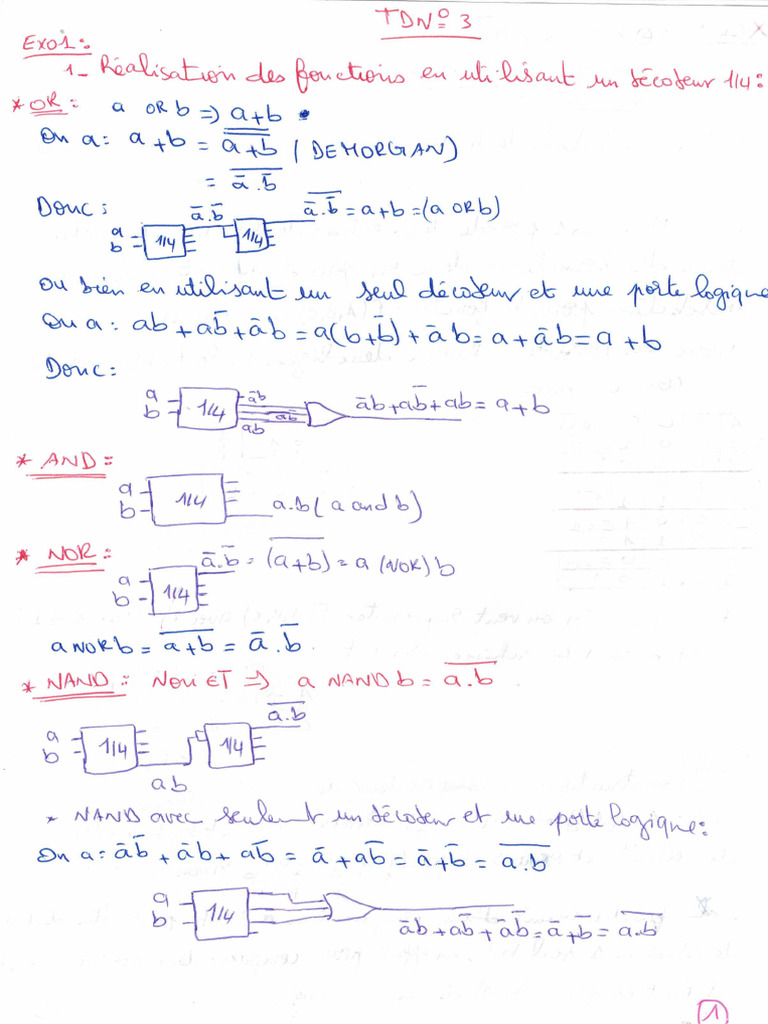 TDN° 3
Exo1:
1- Réalisation des fonctions en utilisant un décodeur 1/4:
* OR: a OR b ⇒ a+b
On a: a+b = \overline{\overline{a+b}} (DEMORGAN)
= \overline{ā.b̄}
Donc: ā.b̄ \overline{ā.b̄} = a+b = (a OR b)
a
b 1/4 1/4
ou bien en utilisant un seul décodeur et une porte logique
On a: ab + ab̄ + āb = a(b+b̄) + āb = a + āb = a + b
Donc:
a
b 1/4 āb ab̄ ab āb + ab̄ + ab = a + b
* AND:
a
b 1/4 a.b (a and b)
* NOR: ā.b̄ = \overline{(a+b)} = a (NOR) b
a
b 1/4
a NOR b = \overline{a+b} = ā.b̄
* NAND: Non ET ⇒ a NAND b = \overline{a.b}
\overline{a.b}
a
b 1/4 1/4
ab
* NAND avec seulemt un décodeur et une porte logique:
On a: āb̄ + āb + ab̄ = ā + ab̄ = ā + b̄ = \overline{a.b}
a
b 1/4
āb + ab̄ + āb̄ = ā + b̄ = \overline{a.b}
1